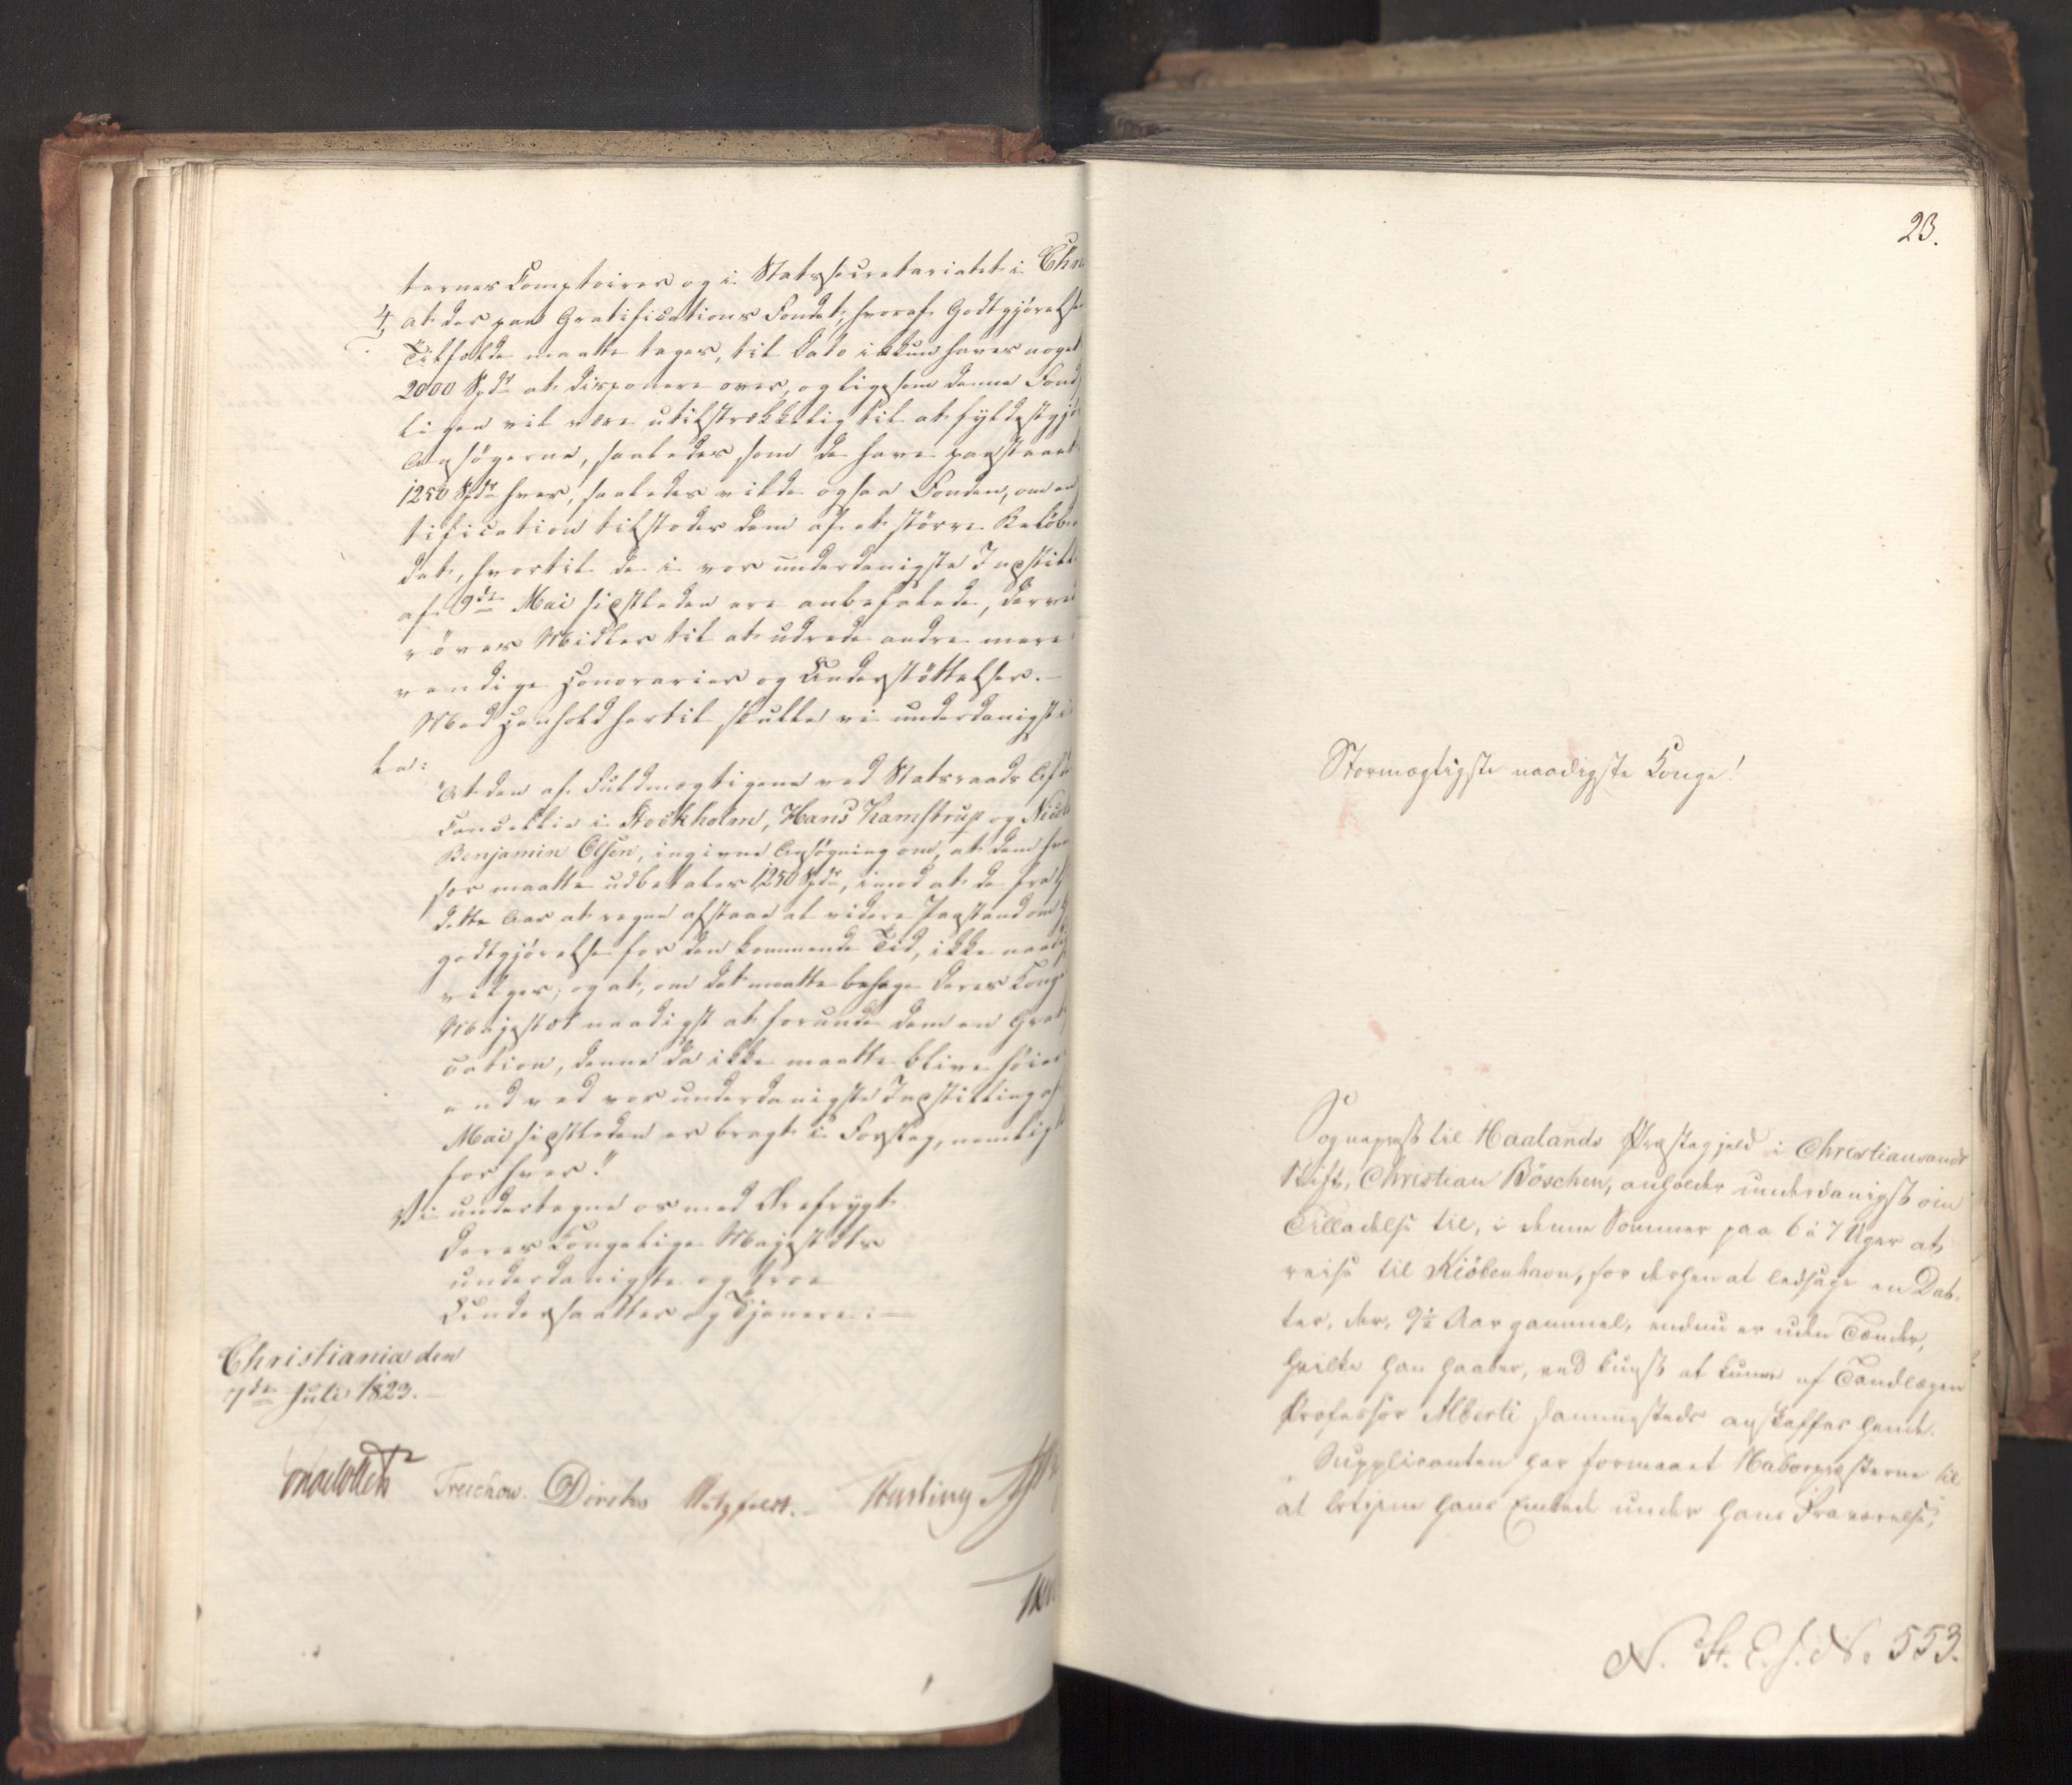 ternes Comptoirer og i Statssecretariatet i Chr
4, at der paa Gratifications Fondet, hvoraf Godtgjørelse
Tilfælde maatte tages, til Dato ikkun haves noget
2000 Spdr at disponere over, og ligesom denne Fond
ligen vil være utilstrækkelig til at fyldestgjø
Ansøgerne, saaledes som de have paastaaet
1250 Spdr hver, saaledes vilde ogsaa Fonden, om en
tification tilstodes dem af et større Beløb
det, hvortil de i vor underdanigste Indstill
af 9de Mai sidstleden ere anbefalede, derved
røves Midler til at udrede andre mere
vendige Honorarier og Understøttelser.–
Med Henhold hertil skulle vi underdanigst i
le:
"At den af Fuldmægtigene ved Statsraads Afd
Cancellie i Stockholm, Hans Kamstrup og Nicol
Benjamin Olsen, ingivne Ansøgning om, at dem hve
for maatte udbetales 1250 Spdr, imod at de fra
dette Aar at regne afstaae al videre Paastand om
godtgjørelse for den kommende Tid, ikke naad
vilges; og at, om det maatte behage Deres Konge
Majestæt naadigst at forunde dem en Grat
cation, denne da ikke maatte blive høie
end ved vor underdanigste Indstilling af
Mai sidstleden er bragt i Forslag, nemlig
for hver."
Vi undertegne os med Ærefrygt
Deres Kongelige Majestæts
underdanigste og troe
Undersaatter og Tjenere.–
Christiania den
7de Juli 1823.
Treschow. Diriks Motzfeldt.– Hasting
23.
Stormægtigste naadigste Konge!
Sognepræst til Haalands Præstegjeld i Christiansands
Stift, Christian Böschen, anholder underdanigst om
Tilladelse til, i denne Sommer paa 6 à 7 Uger at
reise til Kiöbenhavn, for derhen at ledsage en Dat-
ter, der, 9½ Aar gammel, endnu er uden Tænder,
hvilke han haaber, ved Kunst at kunne af Tandlægen
Professor Alberti sammesteds anskaffes hende.
Supplicanten har formaaet Naboepræsterne til
at betjene hans Embede under hans Fraværelse;
N. St. E. J. No 553.